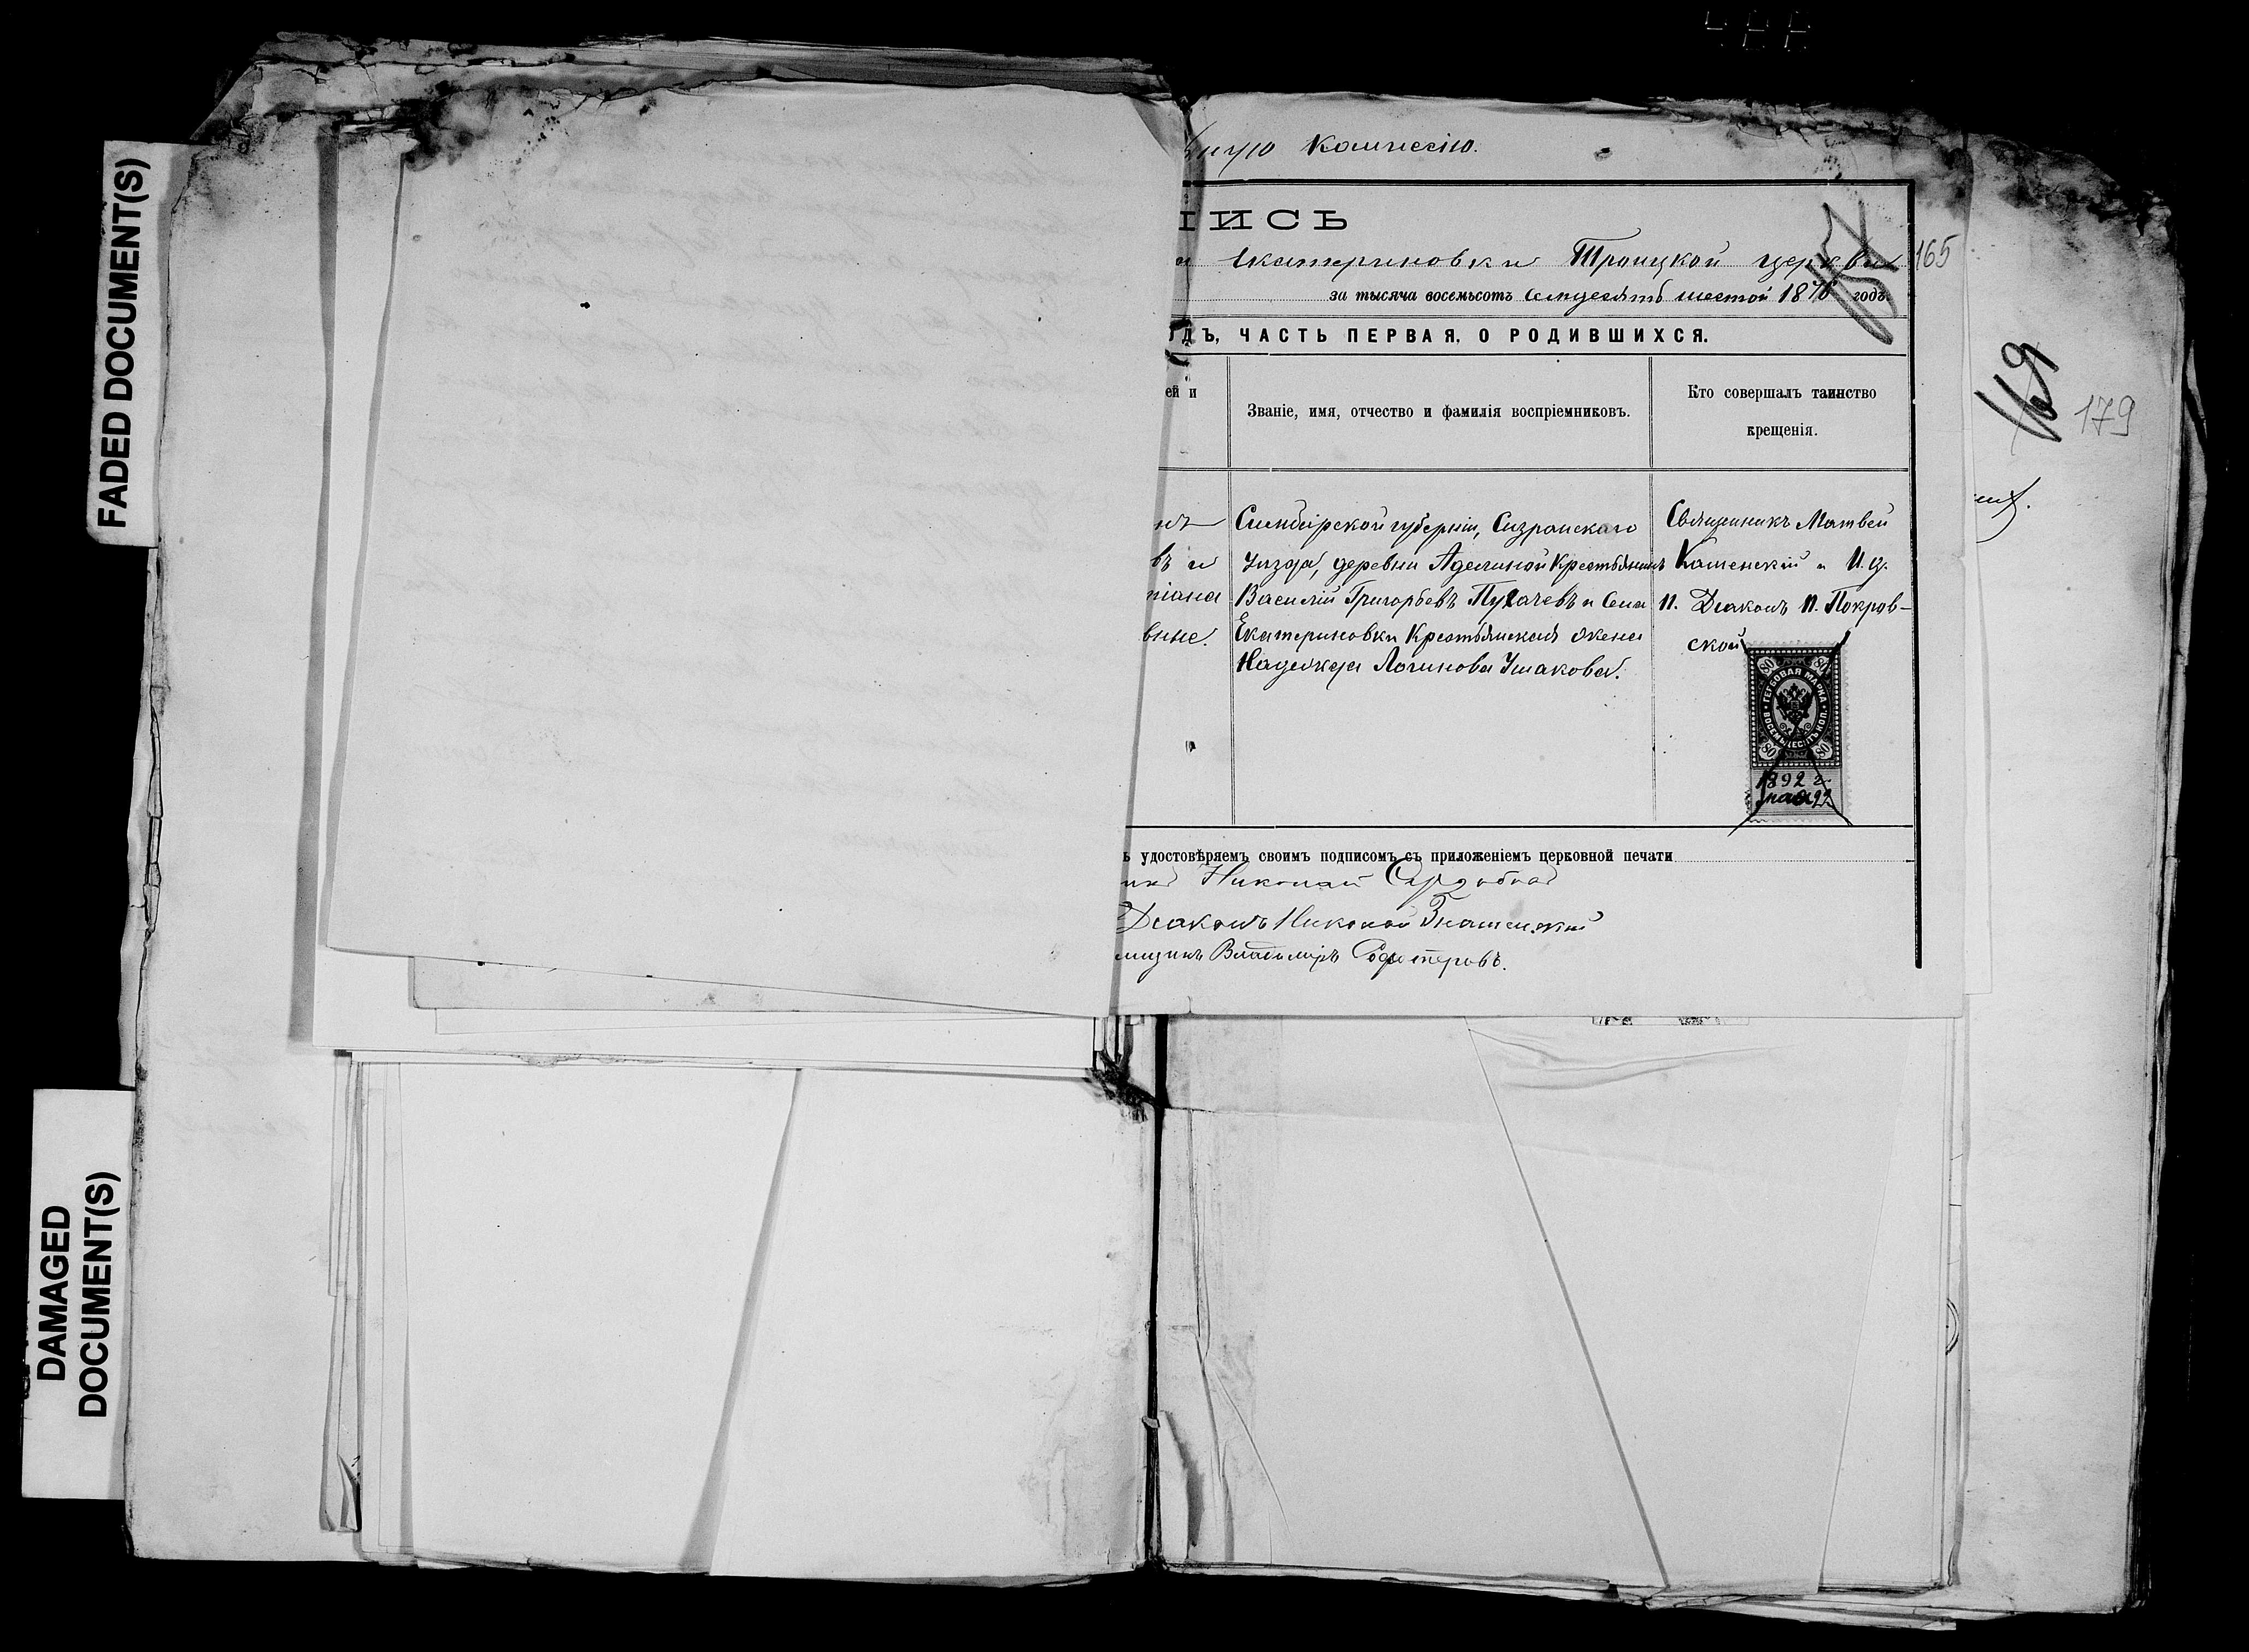 FADED DOCUMENT(S)
DAMAGED
DOCUMENT(S)
вную Коммесію.
ПИСЬ
а Екатериновки Троицкой церкви 165
за тысяча восемьсотъ семдесятъ шестой 1876 годъ.
ОДЪ, ЧАСТЬ ПЕРВАЯ, О РОДИВШИХСЯ.
ей и
Званіе, имя, отчество и фамилія воспріемниковъ.
Кто совершалъ таинство
крещенія.
169
179
нъ
въ и
піана
вны.
Симбирской губерніи, Сизранскаго
Уизда, деревни Аделиной Крестьянинъ
Василій Григорьевъ Пугачевъ и Села
Екатериновки Крестьянская жена
Надежда Логинова Ушакова.
Священникъ Матвей
Каменскій и И. д.
п. Диаконъ П. Покров-
ской
80 80
ГЕРБОВАЯ МАРКА
ВОСЕМЬДЕСЯТЪ КОП.
80 80
1892 г.
мая 22
ъ удостовѣряемъ своимъ подписомъ съ приложеніемъ церковной печати
Николай
Диаконъ Николай Знаменский
Владимиръ